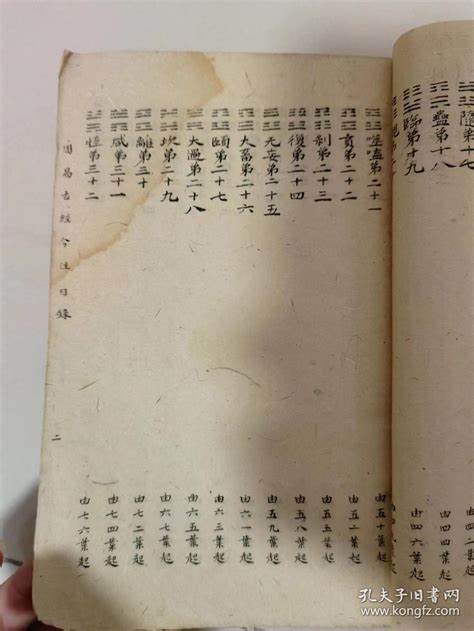 隨第十七
蠱第十八
臨第十九 由四六葉起
噬嗑第二十一 由五十葉起
賁第二十二 由五二葉起
剝第二十三 由五五葉起
復第二十四 由五八葉起
无妄第二十五 由五九葉起
大畜第二十六 由六一葉起
頤第二十七 由六三葉起
大過第二十八 由六五葉起
坎第二十九 由六七葉起
離第三十 由七二葉起
咸第三十一 由七四葉起
恒第三十二 由七六葉起
周易古經今注目錄 二
孔夫子旧书网
www.kongfz.com